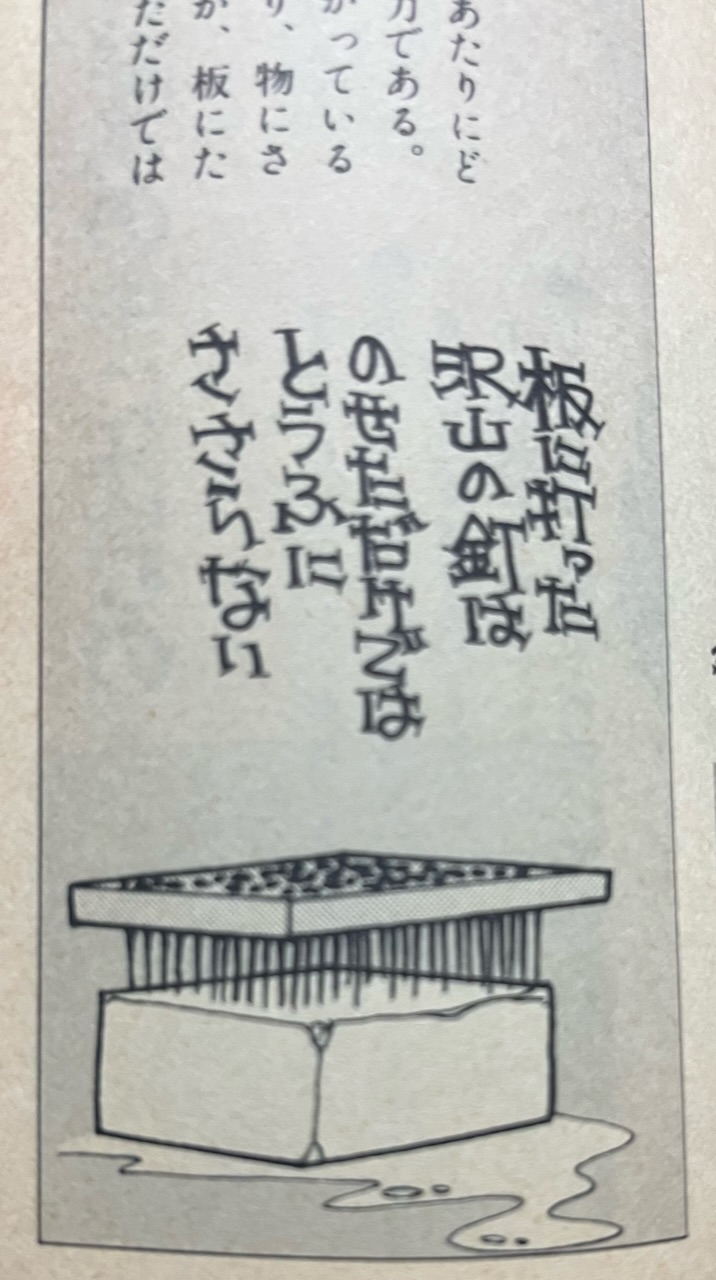 あたりにど
力である。
かっている
り、物にさ
が、板にた
ただけでは
板に打った
沢山の釘は
のせただけでは
とうふに
ささらない